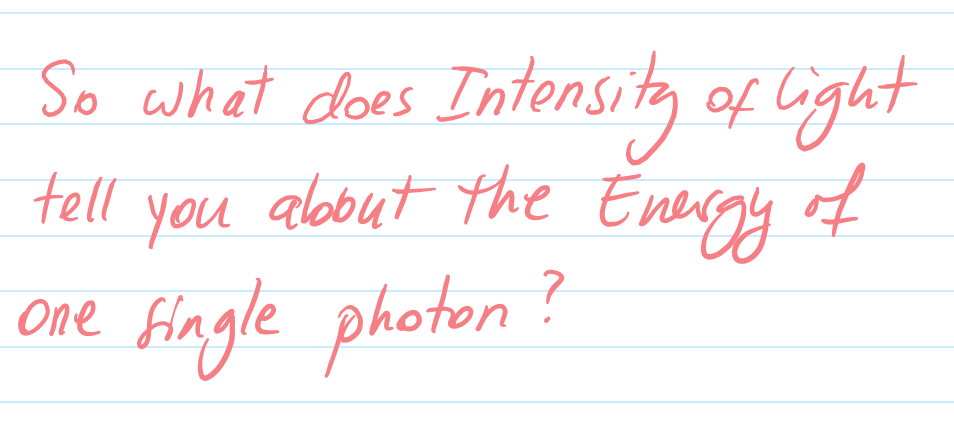 So what does Intensity of light
tell you about the Energy of
one single photon?